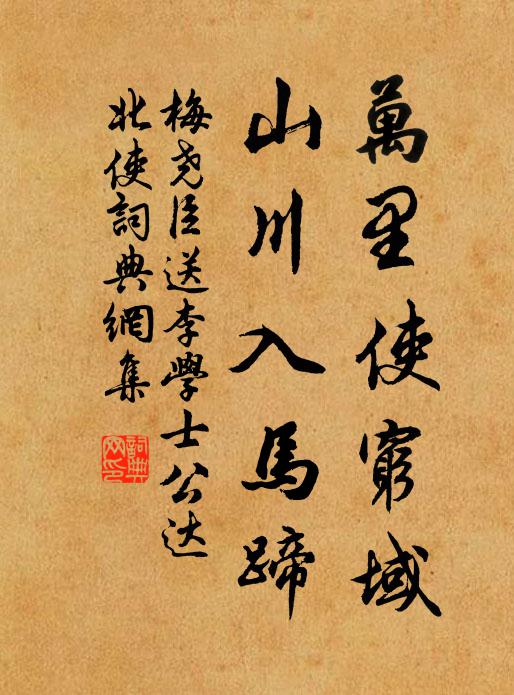 萬里使窮域
山川入馬蹄
梅尧臣送李學士公达
北使詞典網集
詞典网印